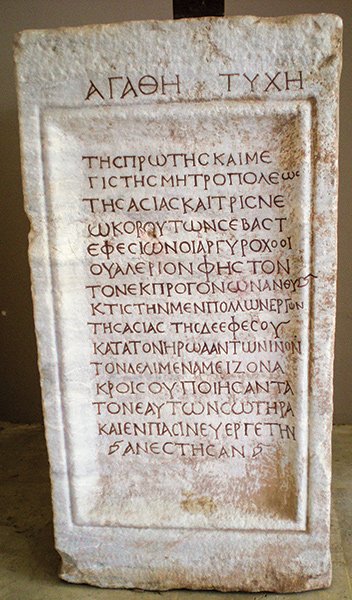 ΑΓΑΘΗ ΤΥΧΗ
ΤΗϹΠΡΩΤΗϹΚΑΙΜΕ
ΓΙϹΤΗϹΜΗΤΡΟΠΟΛΕΩϹ
ΤΗϹΑϹΙΑϹΚΑΙΤΡΙϹΝΕ
ΩΚΟΡΟΥΤΩΝϹΕΒΑϹΤ
ΕΦΕϹΙΩΝΟΙΑΡΓΥΡΟΧΟΟΙ
ΟΥΑΛΕΡΙΟΝΦΗϹΤΟΝ
ΤΟΝΕΚΠΡΟΓΟΝΩΝΑΝΘΥ
ΚΤΙϹΤΗΝΜΕΝΠΟΛΛΩΝΕΡΓΩΝ
ΤΗϹΑϹΙΑϹ ΤΗϹΔΕΕΦΕϹΟΥ
ΚΑΤΑΤΟΝΗΡΩΑΑΝΤΩΝΙΝΟΝ
ΤΟΝΔΕΛΙΜΕΝΑΜΕΙΖΟΝΑ
ΚΡΟΙϹΟΥ ΠΟΙΗϹΑΝΤΑ
ΤΟΝΕΑΥΤΩΝϹΩΤΗΡΑ
ΚΑΙΕΝΠΑϹΙΝΕΥΕΡΓΕΤΗΝ
ΑΝΕϹΤΗϹΑΝ